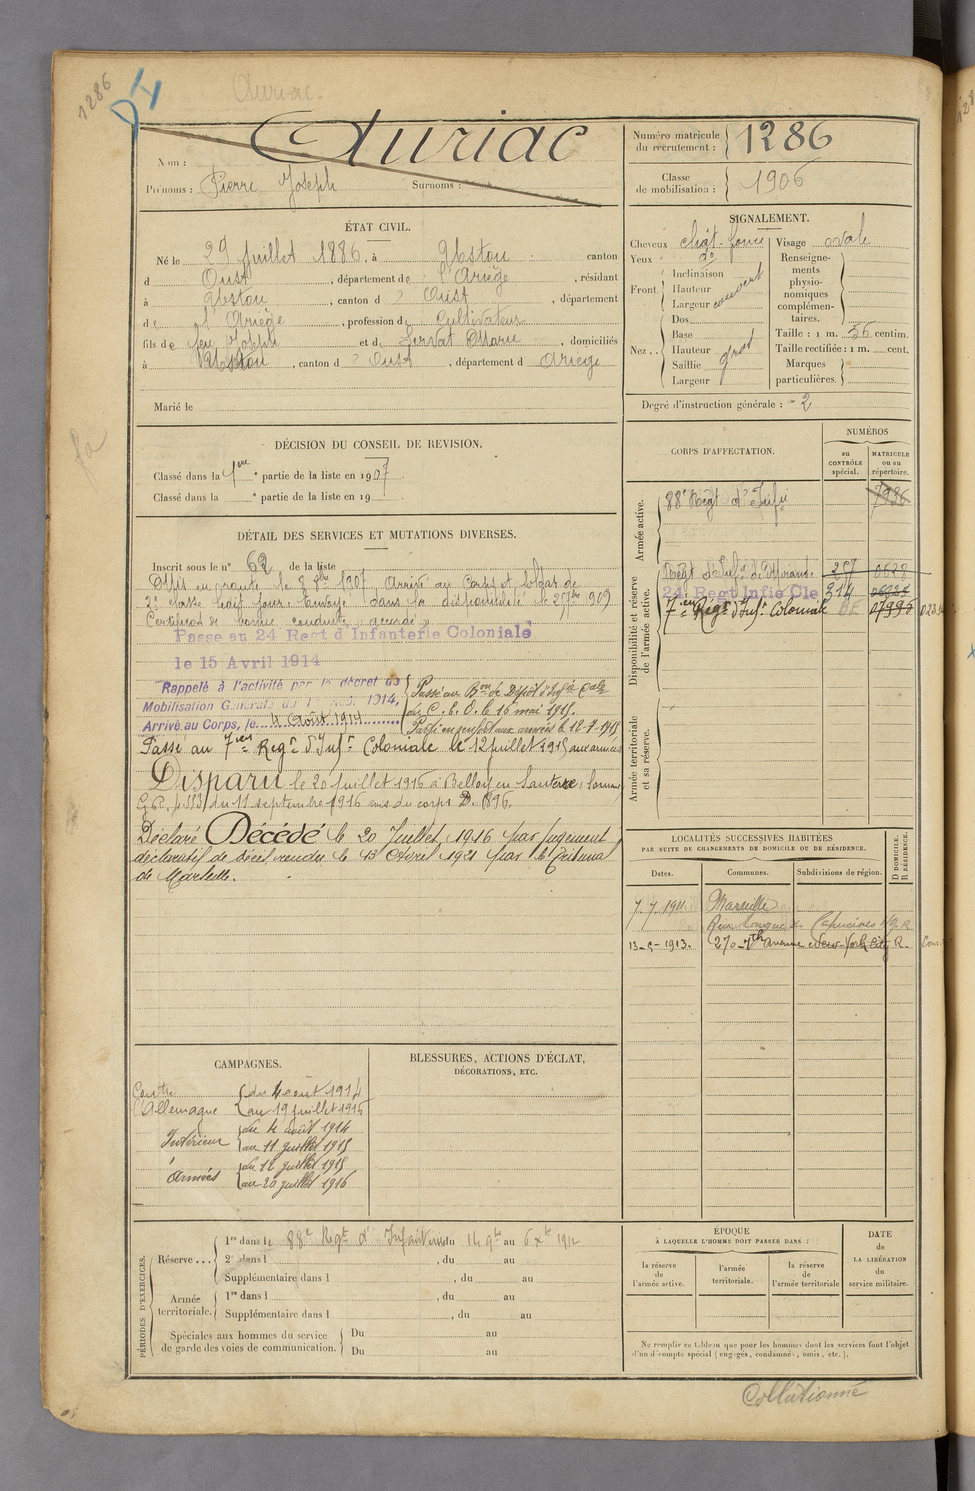 1286
Auriac
Auriac
Nom :
Prénoms : Pierre Joseph Surnoms :
Numéro matricule du recrutement : 1286
Classe de mobilisation : 1906
ÉTAT CIVIL.
Né le 29 Juillet 1886, à canton
d Oust, département de l'Ariège, résidant
à, canton d Oust, département
de l'Ariège, profession de Cultivateur
fils de feu Joseph et de Servat Marie, domiciliés
à, canton d Oust, département d Ariège
Marié le
SIGNALEMENT.
Cheveux chât. foncé Visage ovale
Yeux do
Front. Inclinaison
Hauteur
Largeur couvert
Nez .. Dos
Base
Hauteur
Saillie gros
Largeur
Renseignements physionomiques complémentaires.
Taille : 1 m. 56 centim.
Taille rectifiée : 1 m. cent.
Marques particulières.
Degré d'instruction générale : 2
DÉCISION DU CONSEIL DE REVISION.
Classé dans la 1ère partie de la liste en 1907
Classé dans la e partie de la liste en 19
CORPS D'AFFECTATION.
NUMÉROS
au CONTRÔLE spécial.
MATRICULE ou au répertoire.
Armée active.
88e Régt d'Infie 7986
Disponibilité et réserve de l'armée active.
Régt d'Infie de 257
24e Regt Infie Cle 314
7e Regt d'Infie Coloniale
Armée territoriale et sa réserve.
DÉTAIL DES SERVICES ET MUTATIONS DIVERSES.
Inscrit sous le n° 62 de la liste
en route le 8 8bre 1907. Arrivé au Corps et Soldat de
2e classe ledit jour. Envoyé dans la disponibilité le 25 7bre 1909
Certificat de bonne conduite "accordé"
Passé au 24 Regt d Infanterie Coloniale
le 15 Avril 1914
Rappelé à l'activité par le décret de
Mobilisation Générale du 1er Août 1914,
Arrivé au Corps, le 4 Août 1914
Passé au Bon de Dépôt d'Infie Cale
du C. E. O. le 16 mai 1915.
Passé en renfort aux armées le 12-7-1915
Passé au 7e Regt d'Infie Coloniale le 12 juillet 1915 aux armées
Disparu le 20 juillet 1916 à Belloy en Santerre, Somme
du 11 septembre 1916 avis du corps D. 1896.
Déclaré Décédé le 20 Juillet 1916 par jugement
déclaratif de décès rendu le 13 Avril 1921 par le Tribunal
de Marseille.
LOCALITÉS SUCCESSIVES HABITÉES
PAR SUITE DE CHANGEMENTS DE DOMICILE OU DE RÉSIDENCE.
D DOMICILE. R RÉSIDENCE.
Dates. Communes. Subdivisions de région.
7.7.1911 Marseille
Rue Longue des Capucines
13-5-1913. 270-7th avenue New-York City R.
CAMPAGNES.
Contre l'Allemagne du 4 août 1914
au 19 juillet 1916
Intérieur du 4 août 1914
au 11 juillet 1915
Armées du 12 juillet 1915
au 20 juillet 1916
BLESSURES, ACTIONS D'ÉCLAT,
DÉCORATIONS, ETC.
PÉRIODES D'EXERCICES.
Réserve ... 1re dans le 88e Régt d'Infanterie du 14 9bre au 6 Xbre 1912
2e dans l, du au
Supplémentaire dans l, du au
Armée territoriale. 1re dans l, du au
Supplémentaire dans l, du au
Spéciales aux hommes du service de garde des voies de communication. Du au
Du au
ÉPOQUE
À LAQUELLE L'HOMME DOIT PASSER DANS :
la réserve de l'armée active.
l'armée territoriale.
la réserve de l'armée territoriale
DATE de LA LIBÉRATION du service militaire.
Ne remplir ce tableau que pour les hommes dont les services font l'objet
d'un décompte spécial (engagés, condamnés, omis, etc.).
Collationné